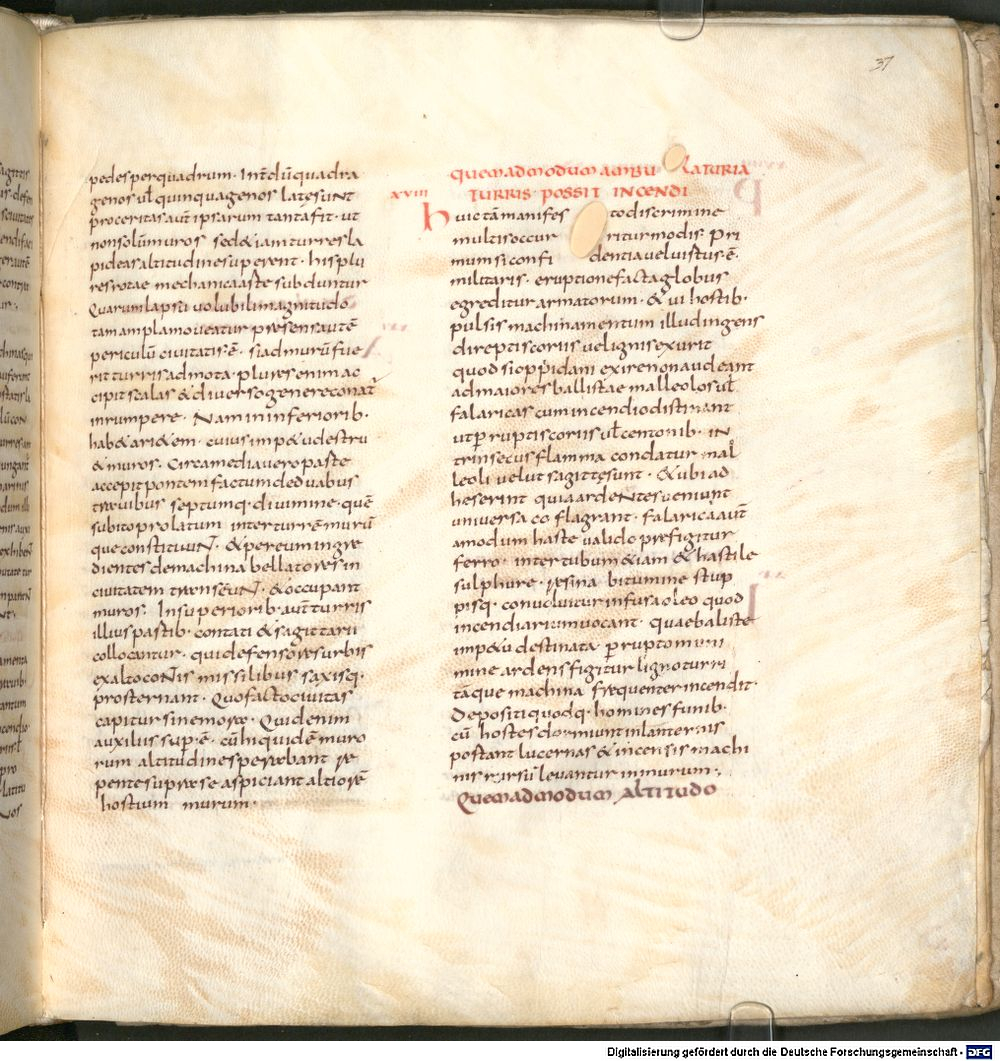 37
pedes per quadrum. Interdū quadra
genos uł quinquagenos latesunt
proceritas aūt ipsarum tanta fit. ut
non solū muros sed &iam turres la
pideas altitudine superent. his plu
res rotae mechanica aste subduntur
quarum lapsu uolubili magnitudo
tam ampla moueatur praesens autē
periculū ciuitatis ē. si ad murū fue
rit turris admota. plures enim ac
cipit scalas & diuerso genere conat̄
inrumpere. Nam in inferiorib.
hab& ari&em. cuius imp&u destru
& muros. Circa media uero parte
accepit pontem factum de duabus
trauibus septumq. diuimine. quē
subito prolatum inter turrē murū
que constituuNt. & per eum ingre
dientes de machina bellatores in
ciuitatem transeuNt. & occupant
muros. In superiorib. aūt turris
illius partib. contati & sagittarii
collocantur. qui defensores urbis
ex alto coNtis missilibus saxisq.
prosternant. Quo facto ciuitas
capitur sine mora. Quid enim
auxilii sup̄. ē. cū hi qui dē muro
rum altitudine sperabant re
pente supra se aspiciant altiorē
hostium murum.
quemadmodum ambulaturia
XVIII turris possit incendi
huic tā manifesto discrimine
multis occurritur modis. Pri
mum si confidentia uel uirtus. ē.
militaris. eruptione facta globus
egreditur armatorum. & ui hostib.
pulsis machinamentum illud ingens
direptis coriis uel lignis exurit
quod si oppidani exire non audeant
ad maiores ballistae malleolos uł
falaricas cum incendio distinant
ut p̄ruptis coriis uł centonib. iN
trinsecus flamma condatur mał
leoli uelut sagittę sunt. & ubi ad
heserint quia ardeNtes ueniunt
uniuersa co flagrant. falarica aūt
amodum haste ualido praefigitur
ferro. inter tubum &iam & hastile
sulphure. resina bitumine stup
pisq. conuoluitur infusa oleo quod
incendiarium uocant. quae baliste
imp&u destinata p̄rupto muni
mine ardens figitur ligno turri
tāque machina frequenter incendit.
Depositi quodq. homines funib.
cū hostes dormiunt in lanternis
portant lucernas & incensis machi
nis rursū leuantur in murum.
Quemadmodum altitudo
Digitalisierung gefördert durch die Deutsche Forschungsgemeinschaft - DFG